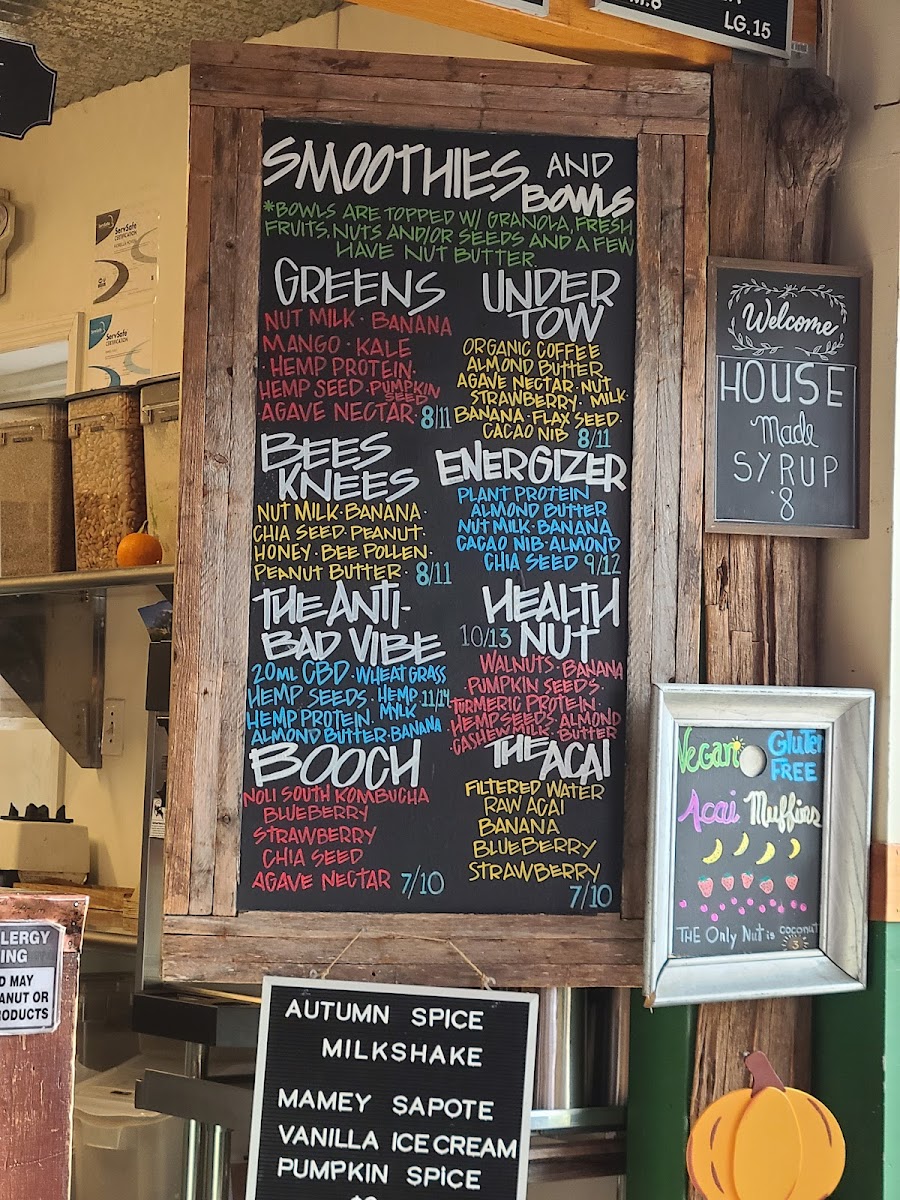 LG.15
SMOOTHIES AND
BOWLS
*BOWLS ARE TOPPED W/ GRANOLA, FRESH
FRUITS, NUTS AND/OR SEEDS AND A FEW
HAVE NUT BUTTER.
GREENS
NUT MILK · BANANA
MANGO · KALE
· HEMP PROTEIN ·
HEMP SEED · PUMPKIN
SEED
AGAVE NECTAR · 8/11
UNDER
TOW
ORGANIC COFFEE
ALMOND BUTTER
AGAVE NECTAR · NUT
STRAWBERRY · MILK ·
BANANA · FLAX SEED ·
CACAO NIB 8/11
BEES
KNEES
NUT MILK · BANANA ·
CHIA SEED · PEANUT ·
HONEY · BEE POLLEN ·
PEANUT BUTTER · 8/11
ENERGIZER
PLANT PROTEIN
ALMOND BUTTER
NUT MILK · BANANA
CACAO NIB · ALMOND
CHIA SEED 9/12
THE ANTI-
BAD VIBE
20ML CBD · WHEAT GRASS
HEMP SEEDS · HEMP 11/14
HEMP PROTEIN · MYLK
ALMOND BUTTER · BANANA
HEALTH
10/13 NUT
WALNUTS · BANANA
· PUMPKIN SEEDS ·
TURMERIC PROTEIN ·
HEMP SEEDS · ALMOND
CASHEW MILK · BUTTER
BOOCH
NOLI SOUTH KOMBUCHA
BLUEBERRY
STRAWBERRY
CHIA SEED
AGAVE NECTAR 7/10
THE ACAI
FILTERED WATER
RAW ACAI
BANANA
BLUEBERRY
STRAWBERRY
7/10
Welcome
HOUSE
Made
SYRUP
8
Vegan Gluten
FREE
Acai Muffins
THE Only Nut is coconut
3
ServSafe
CERTIFICATION
ServSafe
CERTIFICATION
LERGY
ING
D MAY
ANUT OR
ODUCTS
AUTUMN SPICE
MILKSHAKE
MAMEY SAPOTE
VANILLA ICE CREAM
PUMPKIN SPICE